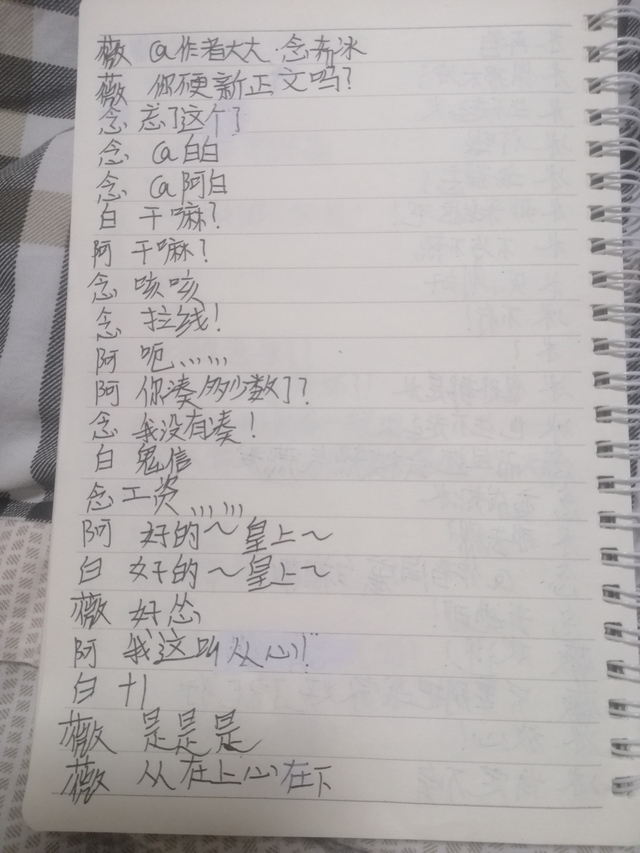 薇 @作者大大·念希冰
薇 你硬新正文吗?
念 忘了这个了
念 @白白
念 @阿白
白 干嘛?
阿 干嘛?
念 咳咳
念 拉线!
阿 呃、、、、、、
阿 你凑多少数了?
念 我没有凑!
白 鬼信
念 工资、、、、、、
阿 好的～皇上～
白 好的～皇上～
薇 好怂
阿 我这叫从心!
白 十1
薇 是是是
薇 从在上心在下